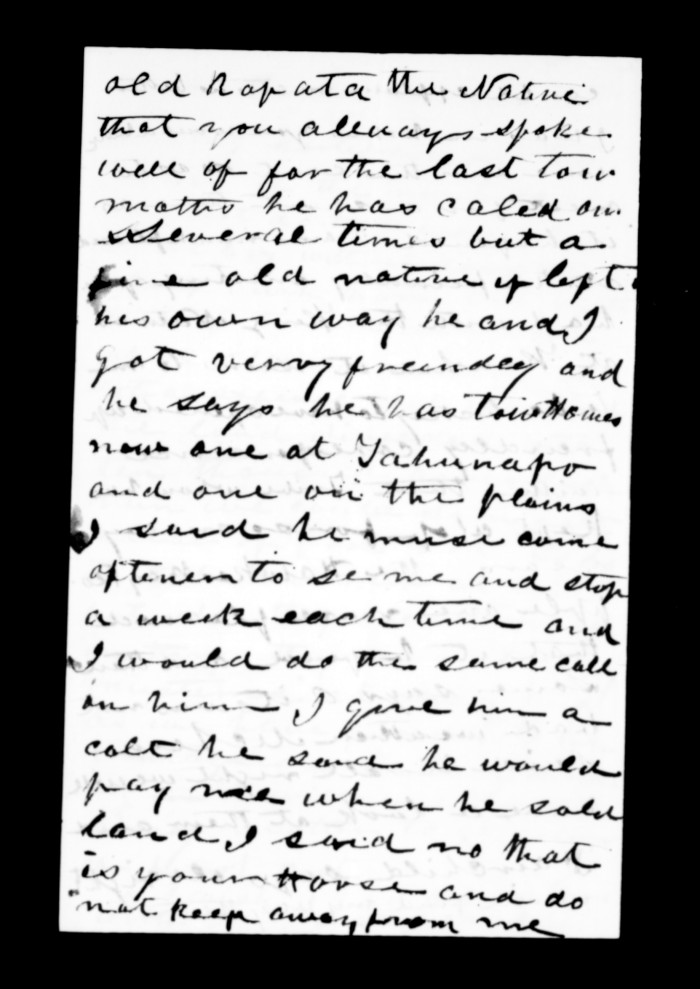 old Ropata the Native
that you allways spoke
well of for the last tow
months he has caled on
Several times but a
fine old native if left
his own way he and I
got verry freindley and
he says he has tow Homes
now one at Tahunapo
and one on the plains
I said he must come
oftener to se me and stop
a week each time and
I would do the same call
on him I gave him a
colt he said he would
pay me when he sold
land I said no that
is your Horse and do
not keep away from me